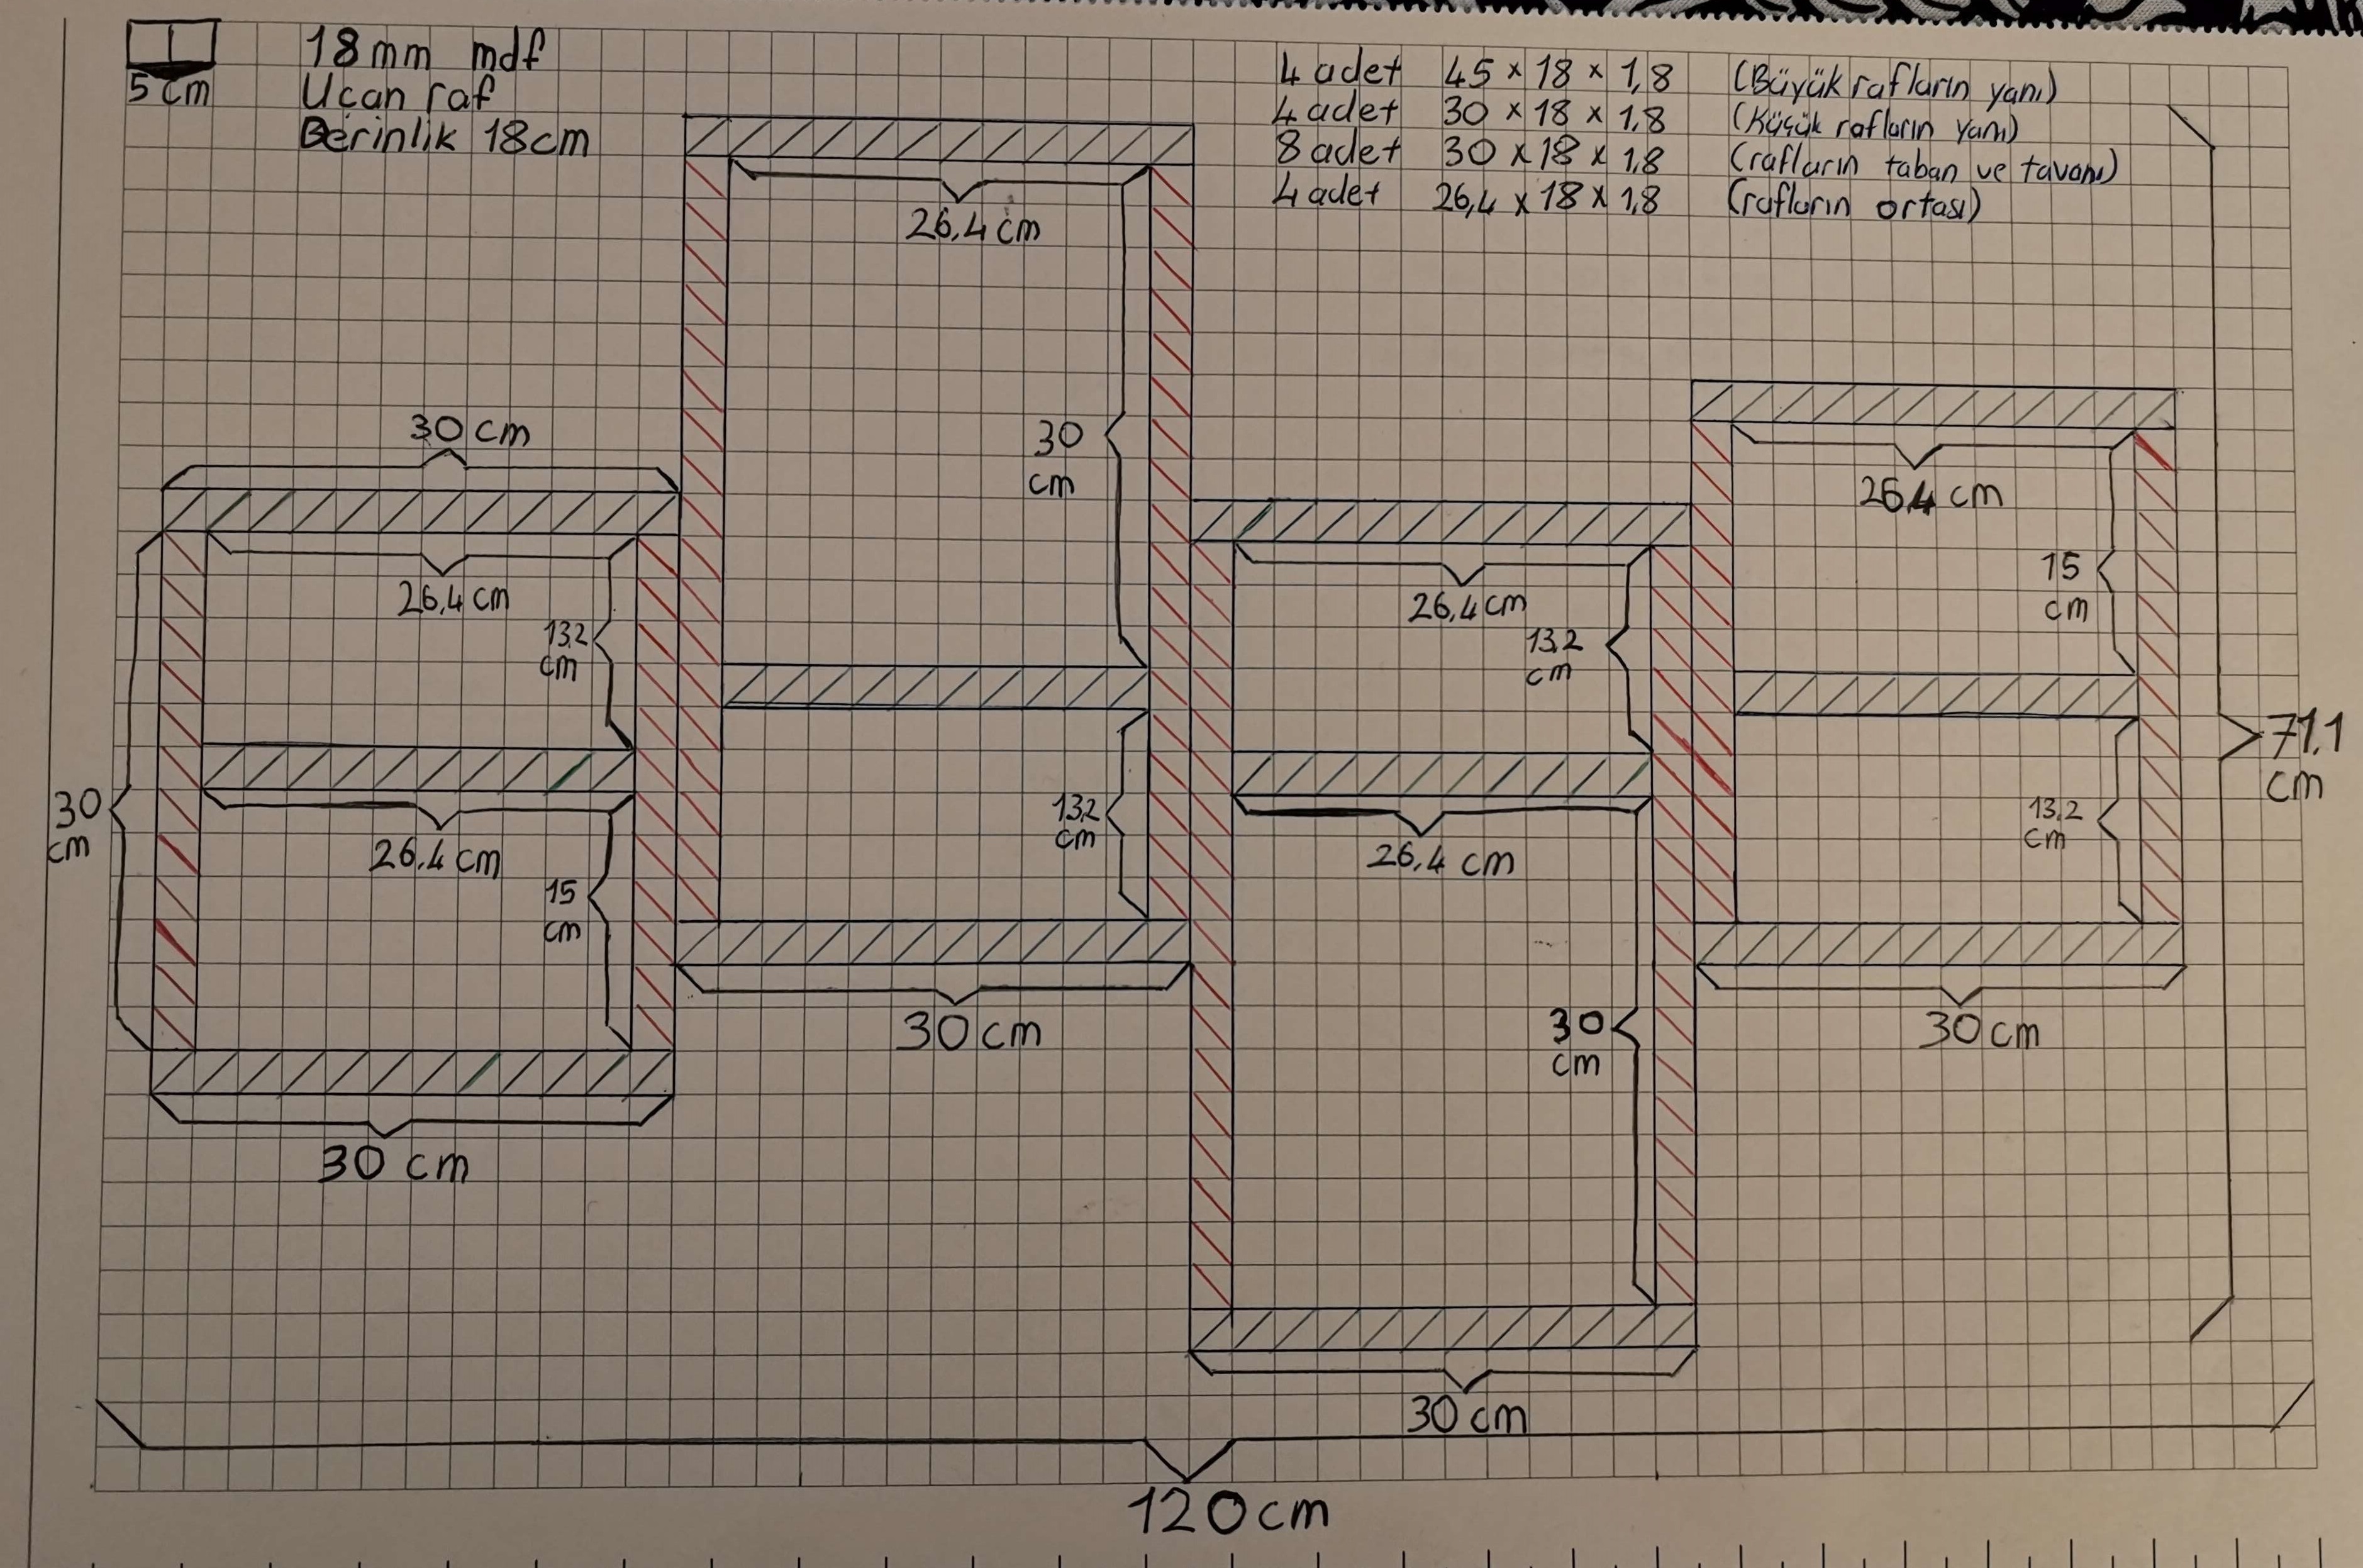 5 cm
18mm mdf
Uçan raf
Derinlik 18cm
4 adet 45 × 18 × 1,8 (Büyük rafların yanı)
4 adet 30 × 18 × 1,8 (Küçük rafların yanı)
8 adet 30 × 18 × 1,8 (rafların taban ve tavanı)
4 adet 26,4 × 18 × 1,8 (rafların ortası)
26,4 cm
30 cm
30
cm
26,4 cm
15
cm
26,4 cm
13,2
cm
26,4 cm
13,2
cm
71,1
cm
30
cm
26,4 cm
15
cm
13,2
cm
26,4 cm
13,2
cm
30 cm
30
cm
30 cm
30 cm
30 cm
120 cm